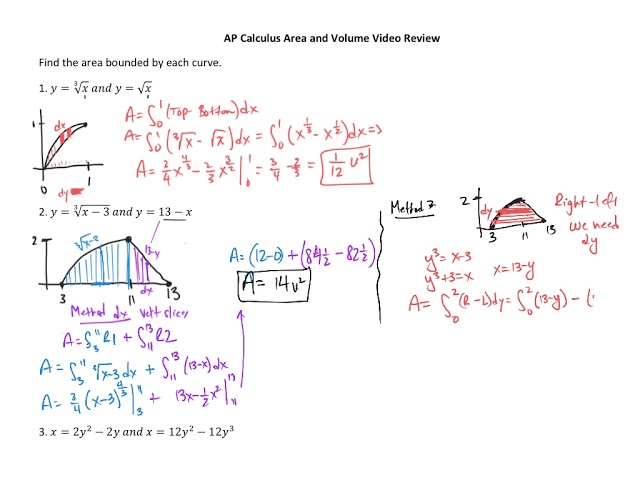 AP Calculus Area and Volume Video Review
Find the area bounded by each curve.
1. y = ∛x and y = √x
1
dx
0
1
dy
A = ∫₀¹ (Top - Bottom) dx
A = ∫₀¹ (∛x - √x) dx = ∫₀¹ (x^(1/3) - x^(1/2)) dx ⇒
A = 3/4 x^(4/3) - 2/3 x^(3/2) |₀¹ = 3/4 - 2/3 = 1/12 u²
2. y = ∛(x - 3) and y = 13 - x
2
3
11
13
dx
Method dx Vert slices
A = ∫₃¹¹ R1 + ∫₁₁¹³ R2
A = ∫₃¹¹ ∛x-3 dx + ∫₁₁¹³ (13-x) dx
A = 3/4 (x-3)^(4/3) |₃¹¹ + 13x - 1/2 x² |₁₁¹³
A = (12-0) + (84 1/2 - 82 1/2)
A = 14 u²
Method 2
2
dy
3
11
13
Right - left
we need
dy
y³ = x-3
y³+3 = x x = 13-y
A = ∫₀² (R - L) dy = ∫₀² (13-y) - (
3. x = 2y² - 2y and x = 12y² - 12y³